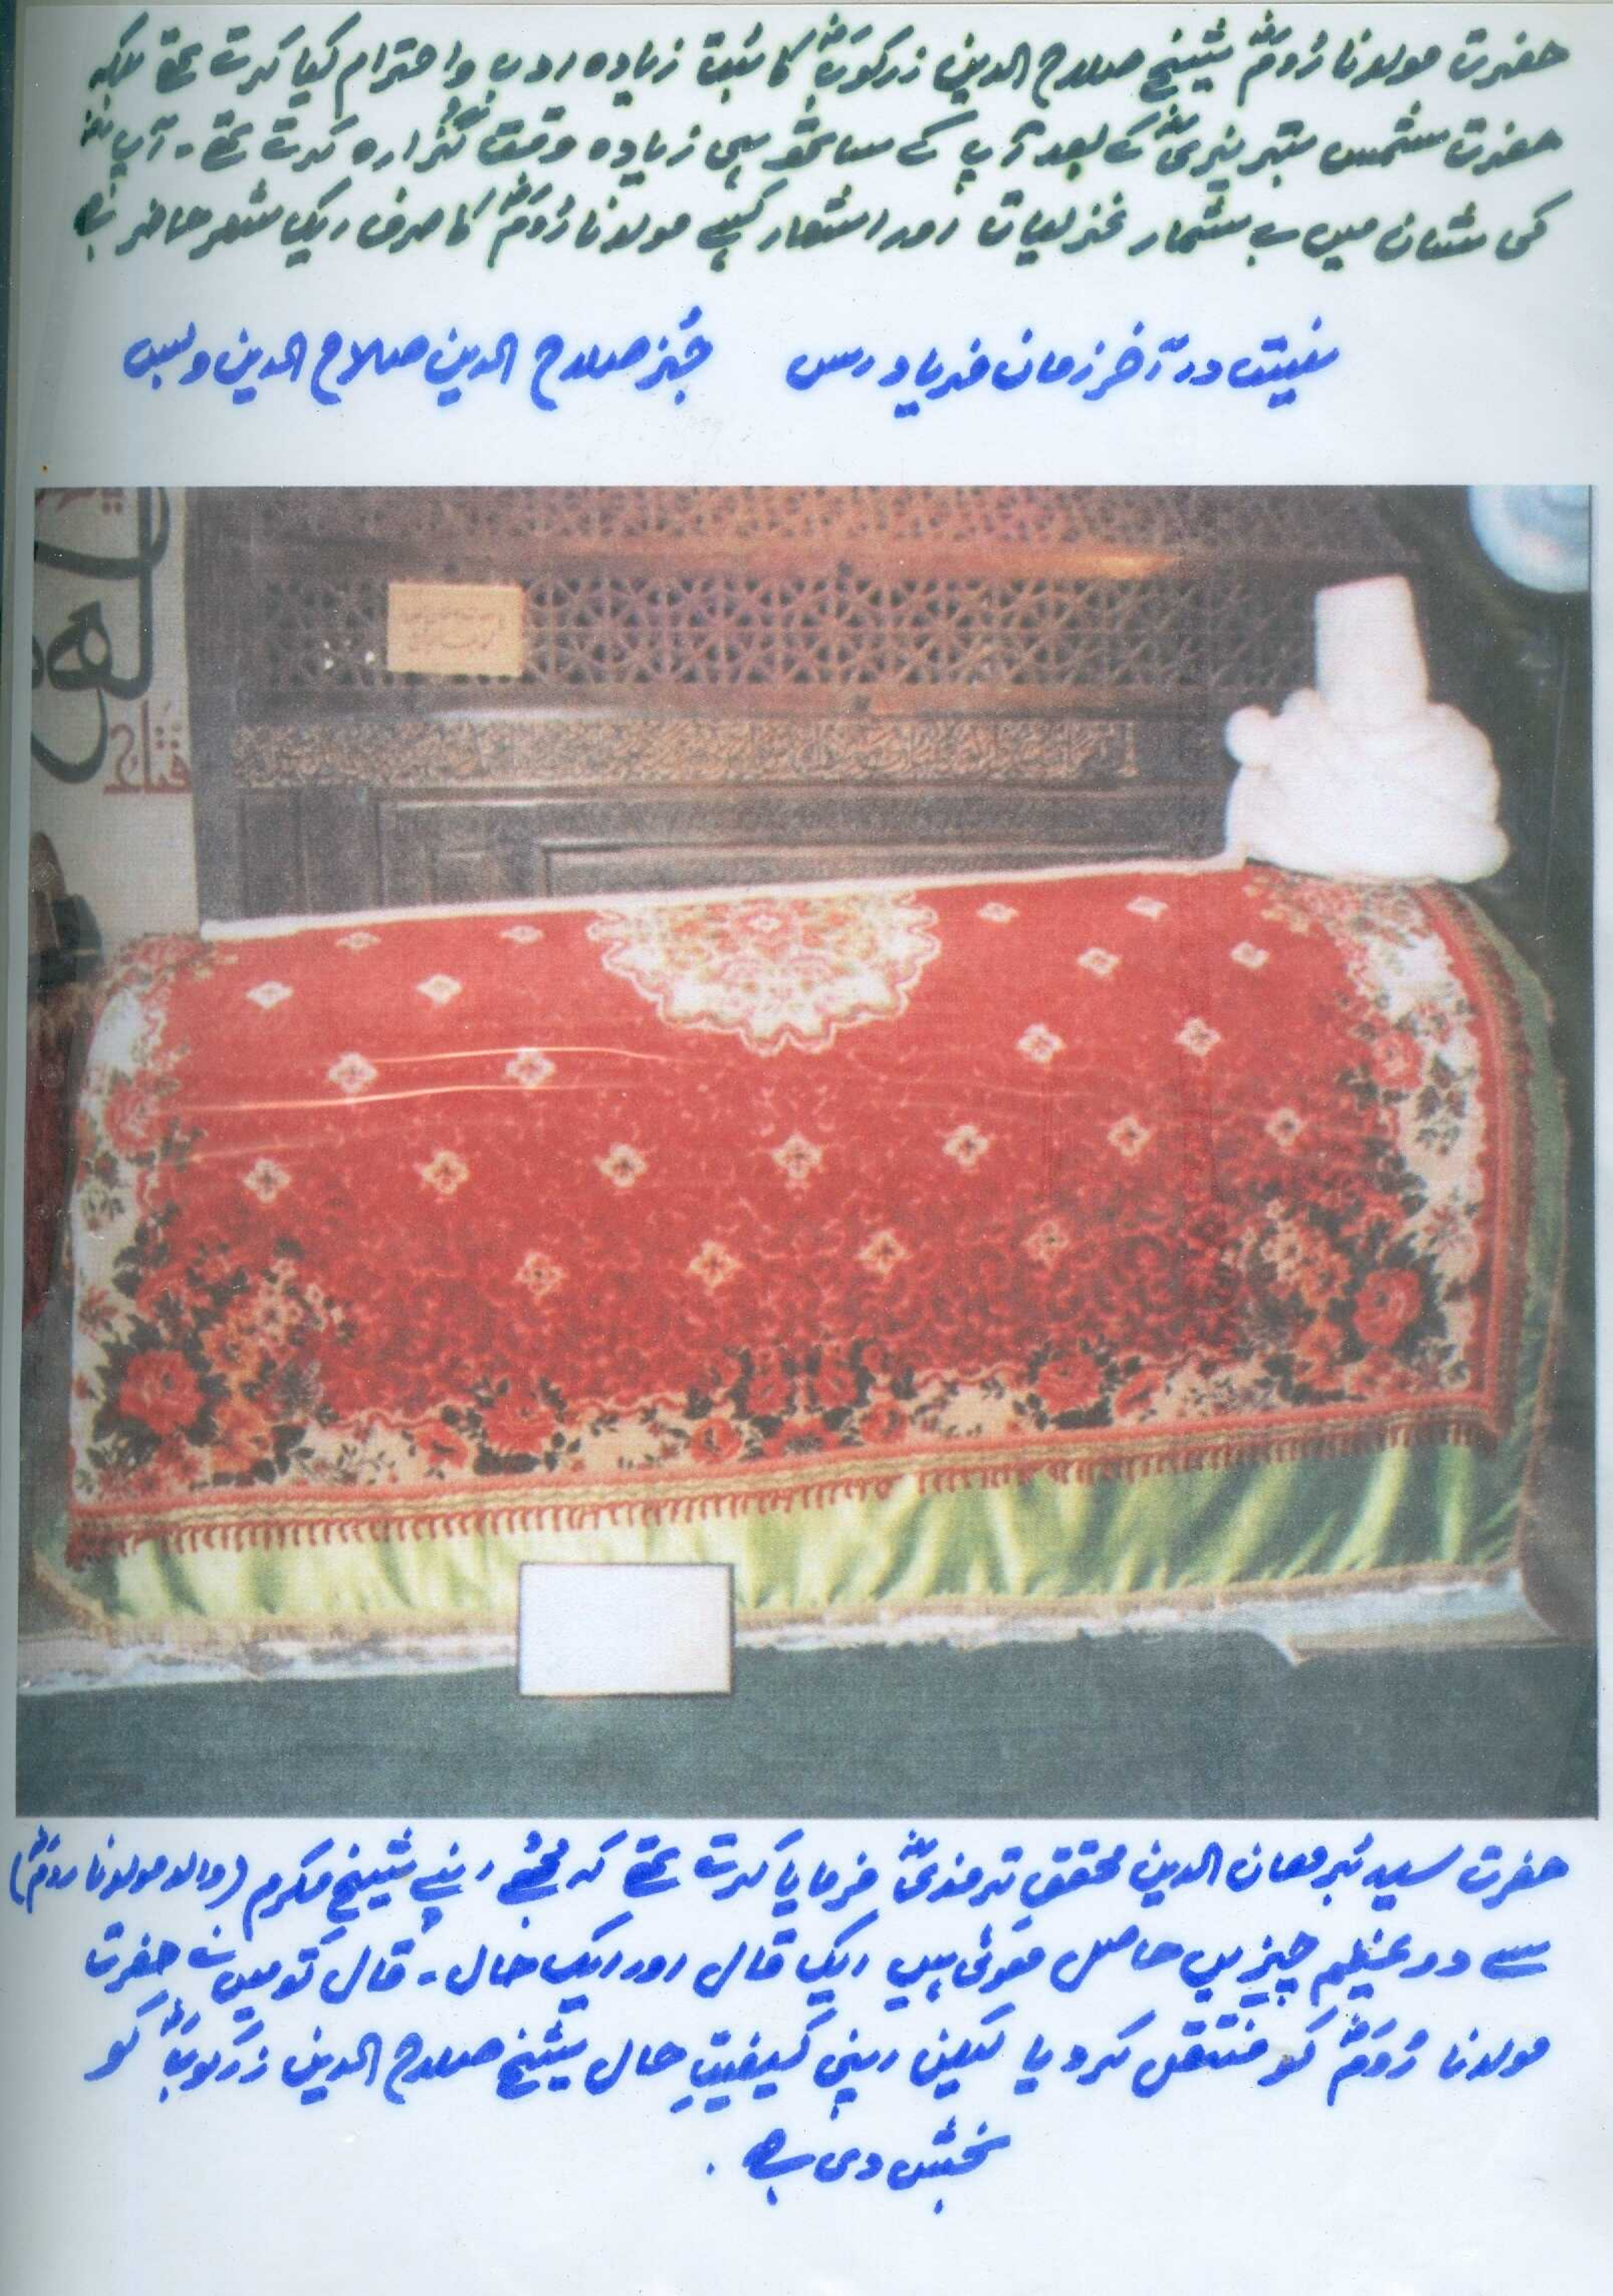 حضرت مولانا رُومؒ شیخ صلاح الدین زرکوبؒ کا بہت زیادہ ادب و احترام کیا کرتے تھے بلکہ
حضرت شمس تبریزیؒ کے بعد آپ کے ساتھ ہی زیادہ وقت گزارہ کرتے تھے۔ آپ نے
کی شان میں بے شمار غزلیات اور اشعار کہے مولانا رُومؒ کا صرف ایک شعر حاضر ہے
نیست در آخر زمان فریاد رس جُز صلاح الدین صلاح الدین و بس
حضرت سید بُرھان الدین محقق ترمذیؒ فرمایا کرتے تھے کہ مجھے اپنے شیخ مکرم (والد مولانا رومؒ)
سے دو عظیم چیزیں حاصل ہوئی ہیں ایک قال اور ایک حال۔ قال تو میں نے حضرت
مولانا رُومؒ کو منتقل کردیا لیکن اپنی کیفیتِ حال شیخ صلاح الدین زرکوبؒ کو
بخش دی ہے.